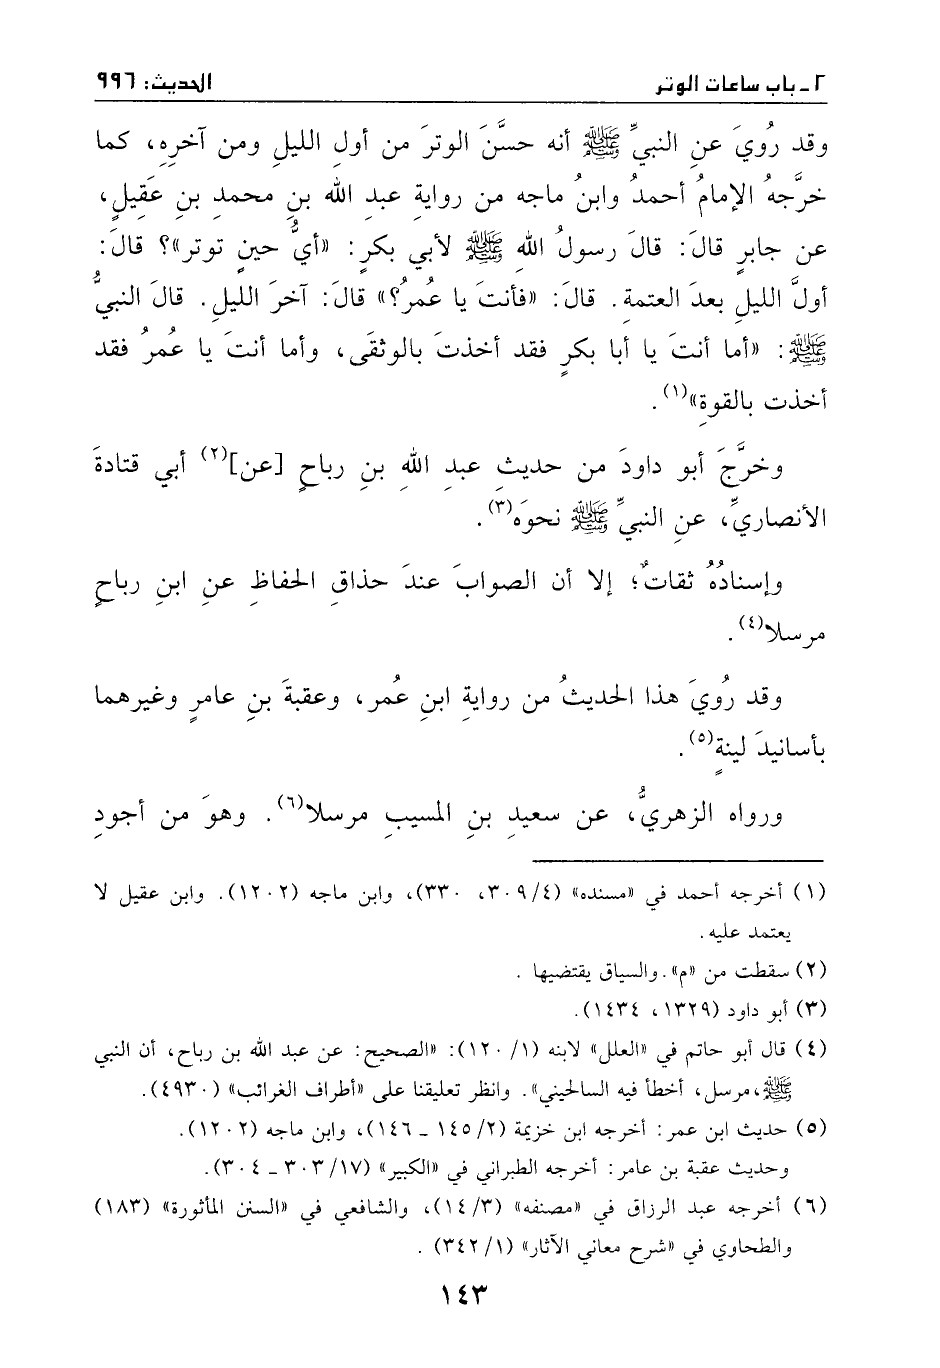 ٢ـ باب ساعات الوتر
الحديث: ٩٩٦
وقد رُويَ عنِ النبيِّ ﷺ أنه حسَّنَ الوترَ من أولِ الليلِ ومن آخرِهِ، كما
خرَّجهُ الإمامُ أحمدُ وابنُ ماجه من روايةِ عبدِ الله بنِ محمدِ بنِ عَقِيلٍ،
عن جابرٍ قالَ: قالَ رسولُ اللهِ ﷺ لأبي بكرٍ: «أيُّ حينٍ توتر»؟ قالَ:
أولَ الليلِ بعدَ العتمةِ. قالَ: «فأنتَ يا عُمرُ؟» قالَ: آخرَ الليلِ. قالَ النبيُّ
ﷺ: «أما أنتَ يا أبا بكرٍ فقد أخذتَ بالوثقَى، وأما أنتَ يا عُمرُ فقد
أخذت بالقوةِ»(١).
وخرَّجَ أبو داودَ من حديثِ عبدِ اللهِ بنِ رباحٍ [عن](٢) أبي قتادةَ
الأنصاريِّ، عنِ النبيِّ ﷺ نحوَه(٣).
وإسنادُهُ ثقاتٌ؛ إلا أن الصوابَ عندَ حذاقِ الحفاظِ عنِ ابنِ رباحٍ
مرسلا(٤).
وقد رُويَ هذا الحديثُ من روايةِ ابنِ عُمر، وعقبةَ بنِ عامرٍ وغيرهما
بأسانيدَ لينةٍ(٥).
ورواه الزهريُّ، عن سعيدِ بنِ المسيبِ مرسلا(٦). وهوَ من أجودِ
(١) أخرجه أحمد في «مسنده» (٣٠٩/٤، ٣٣٠)، وابن ماجه (١٢٠٢). وابن عقيل لا
يعتمد عليه.
(٢) سقطت من «م». والسياق يقتضيها .
(٣) أبو داود (١٣٢٩، ١٤٣٤).
(٤) قال أبو حاتم في «العلل» لابنه (١/ ١٢٠): «الصحيح: عن عبد الله بن رباح، أن النبي
ﷺ، مرسل، أخطأ فيه السالحيني». وانظر تعليقنا على «أطراف الغرائب» (٤٩٣٠).
(٥) حديث ابن عمر: أخرجه ابن خزيمة (٢/ ١٤٥ ـ ١٤٦)، وابن ماجه (١٢٠٢).
وحديث عقبة بن عامر: أخرجه الطبراني في «الكبير» (١٧/ ٣٠٣ ـ ٣٠٤).
(٦) أخرجه عبد الرزاق في «مصنفه» (١٤/٣)، والشافعي في «السنن المأثورة» (١٨٣)
والطحاوي في «شرح معاني الآثار» (١/ ٣٤٢) .
١٤٣